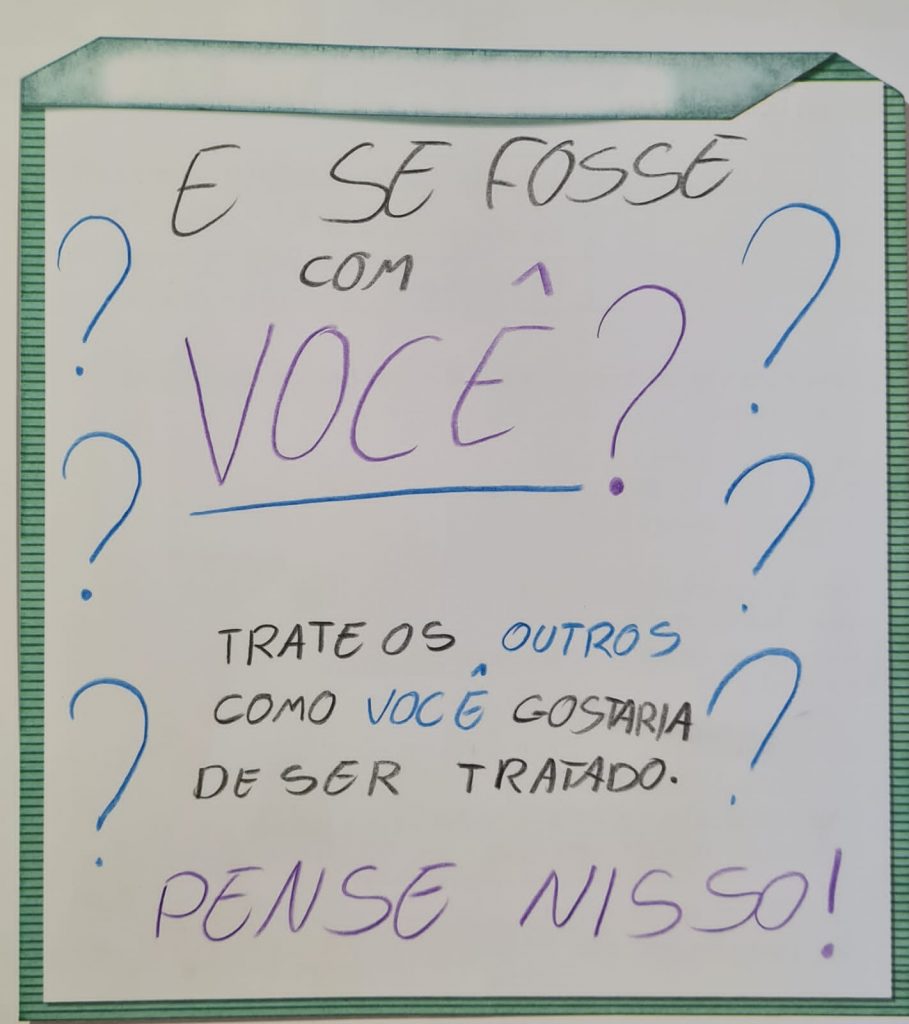 E SE FOSSE
COM
VOCÊ?
TRATE OS OUTROS
COMO VOCÊ GOSTARIA
DE SER TRATADO.
PENSE NISSO!